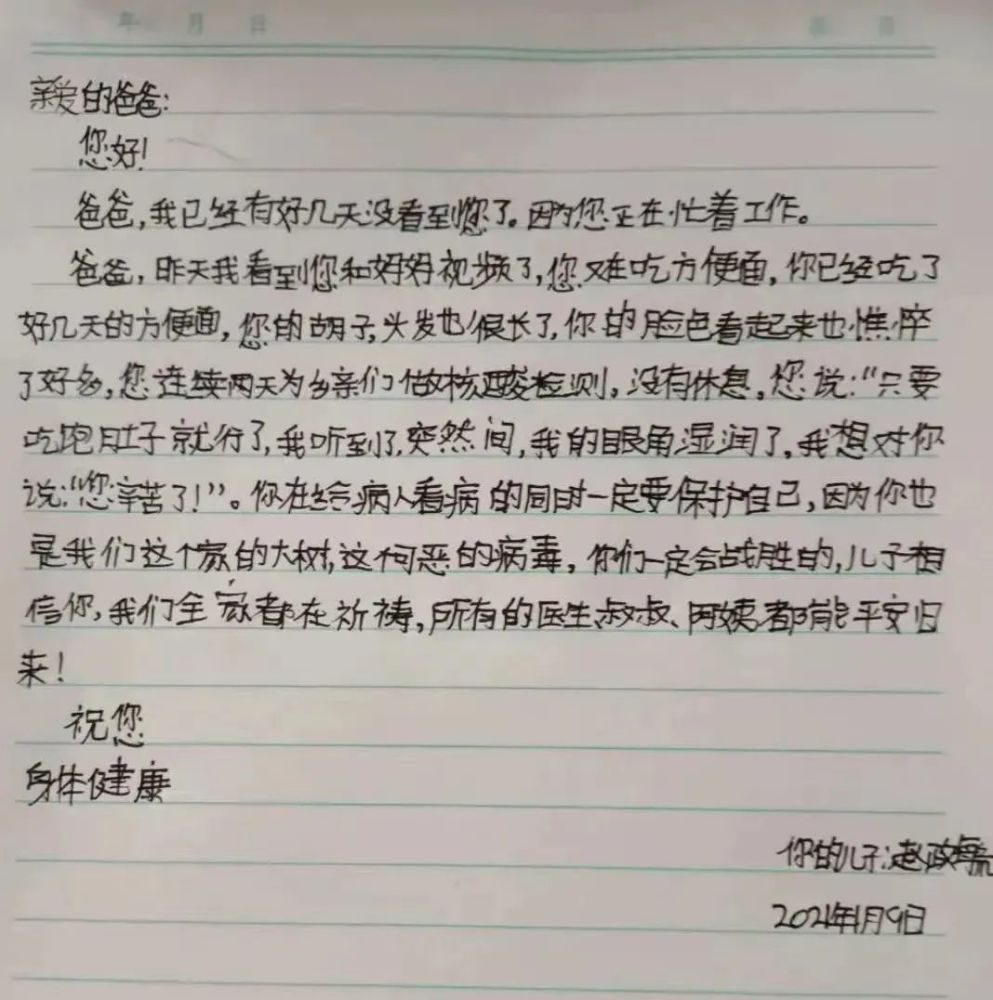 年 月 日
亲爱的爸爸:
您好!
爸爸,我已经有好几天没看到您了。因为您正在忙着工作。
爸爸,昨天我看到您和妈妈视频了,您又在吃方便面,你已经吃了
好几天的方便面,您的胡子,头发也很长了,你的脸色看起来也憔悴
了好多,您连续两天为乡亲们做核酸检测,没有休息,您说:“只要
吃饱肚子就行了,我听到了,突然间,我的眼角湿润了,我想对你
说:“您辛苦了!”。你在给病人看病的同时一定要保护自己,因为你也
是我们这个家的大树,这可恶的病毒,你们一定会战胜的,儿子相
信你,我们全家都在祈祷,所有的医生叔叔、阿姨都能平安归
来!
祝您
身体健康
你的儿子:赵政
2021年1月9日